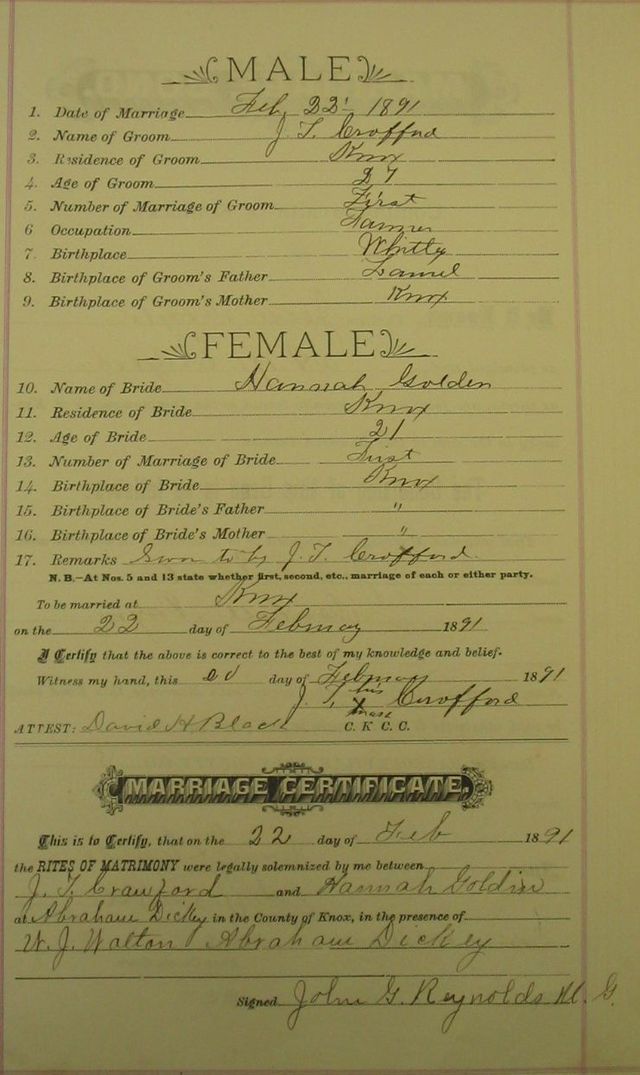 MALE
1. Date of Marriage Feb 22' 1891
2. Name of Groom J. T. Crofford
3. Residence of Groom Knox
4. Age of Groom 27
5. Number of Marriage of Groom First
6 Occupation Farmer
7. Birthplace Whitly
8. Birthplace of Groom's Father Laurel
9. Birthplace of Groom's Mother Knox
FEMALE
10. Name of Bride Hannah Golden
11. Residence of Bride Knox
12. Age of Bride 21
13. Number of Marriage of Bride First
14. Birthplace of Bride Knox
15. Birthplace of Bride's Father "
16. Birthplace of Bride's Mother "
17. Remarks Sworn to by J. T. Crofford.
N. B.—At Nos. 5 and 13 state whether first, second, etc., marriage of each or either party.
To be married at Knox
on the 22 day of February 1891
I Certify that the above is correct to the best of my knowledge and belief.
Witness my hand, this day of February 1891
J. T. his X mark Crofford
ATTEST: David H Black C. K C. C.
MARRIAGE CERTIFICATE.
This is to Certify, that on the 22 day of Feb 1891
the RITES OF MATRIMONY were legally solemnized by me between
J. T. Crawford and Hannah Goldin
at Abraham Dickey in the County of Knox, in the presence of
W. J. Walton Abraham Dickey
Signed John G. Reynolds M. G.